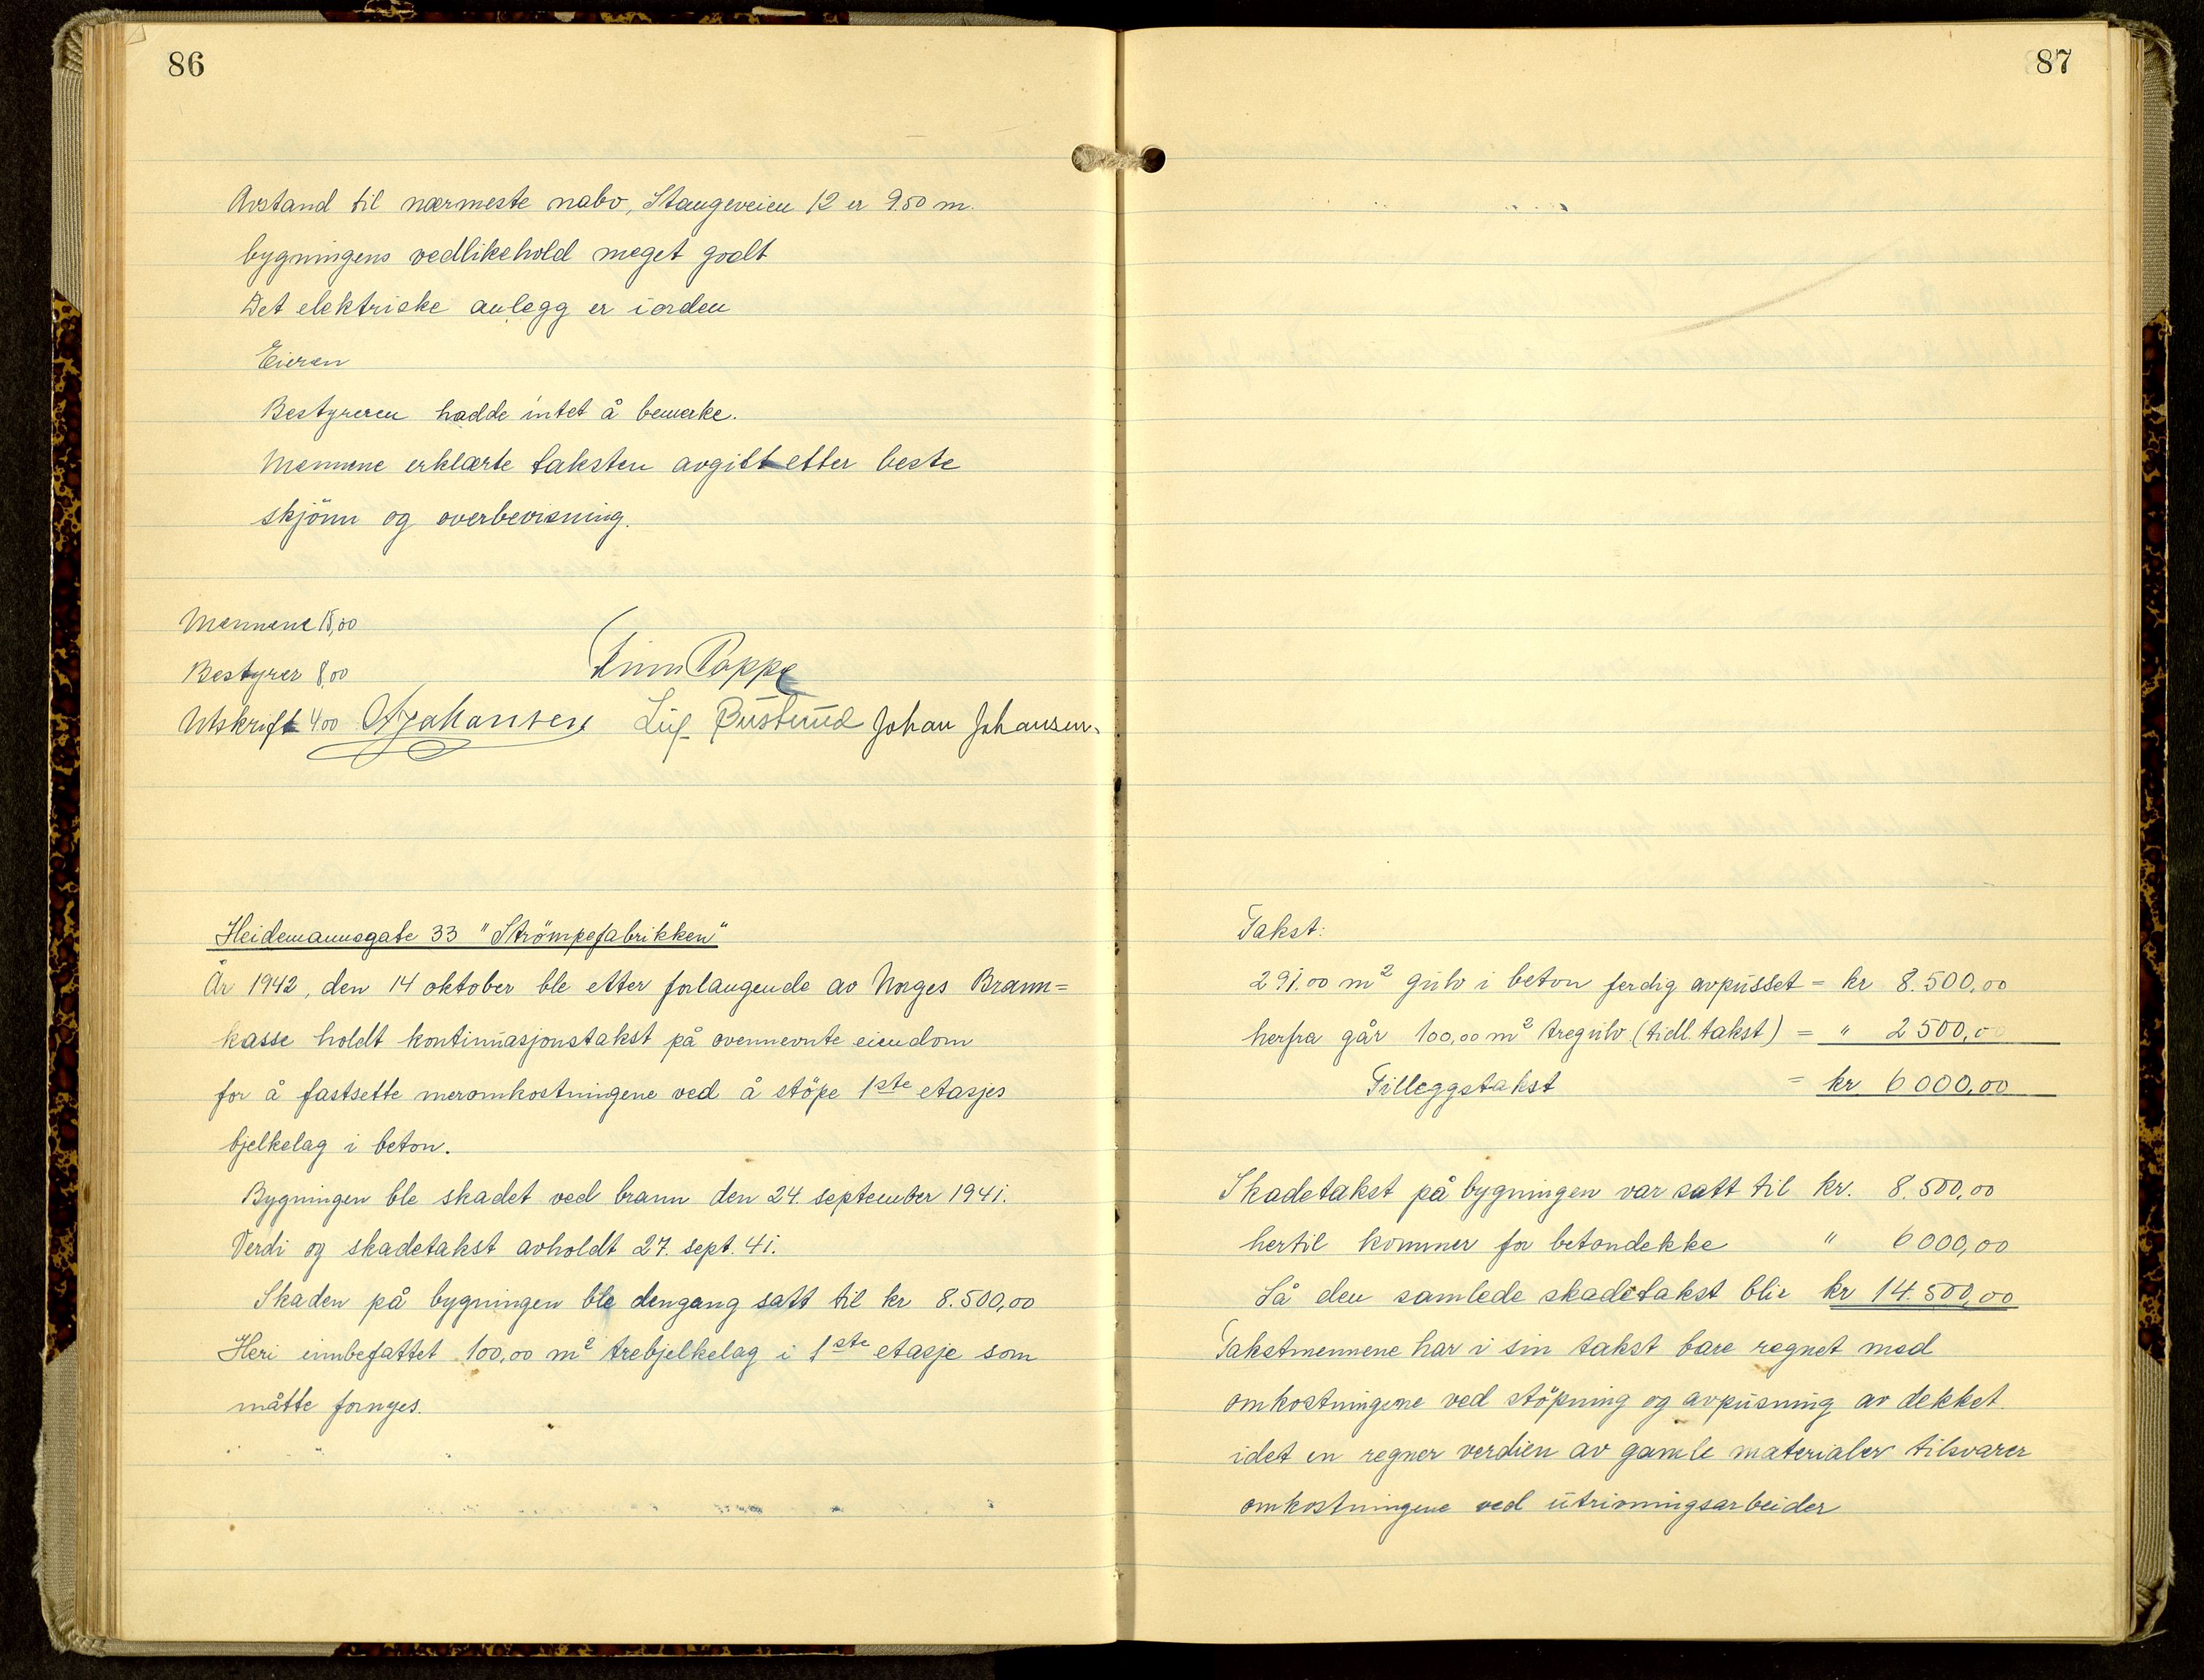 86
Avstand til nærmeste nabo, Stangeveien 12 er 9.50 m.
bygningens vedlikehold meget godt
Det elektriske anlegg er i orden
Eieren
Bestyreren hadde intet å bemerke.
Mennene erklærte taksten avgitt etter beste
skjönn og overbevisning.
Mennene 15,00
Bestyrer 8,00 Finn Poppe
Utskrift 4.00 Johansen Leif Rustund Johan Johansen.
Heidemannsgate 33 "Strömpefabrikken"
År 1942, den 14 oktober ble etter forlangende av Norges Brann=
kasse holdt kontinuasjonstakst på ovennevnte eiendom
for å fastsette meromkostningene ved å stöpe 1ste etasjes
bjelkelag i beton.
Bygningen ble skadet ved brann den 24. september 1941.
Verdi og skadetakst avholdt 27. sept. 41.
Skaden på bygningen ble dengang satt til kr 8.500,00
Heri innbefattet 100,00 m² trebjelkelag i 1ste etasje som
måtte fornyes.
87
Takst:
291.00 m² gulv i beton ferdig avpusset = kr 8.500,00
herfra går 100,00 m² tregulv (tidl. takst) = " 2500,00
Tilleggstakst = kr 6000,00
Skadetakst på bygningen var satt til kr. 8.500,00
hertil kommer for betondekke " 6000,00
Så den samlede skadetakst blir kr 14.500,00
Takstmennene har i sin takst bare regnet med
omkostningene ved stöpning og avpusning av dekket
idet en regner verdien av gamle materialer tilsvarer
omkostningene ved utrivningsarbeider